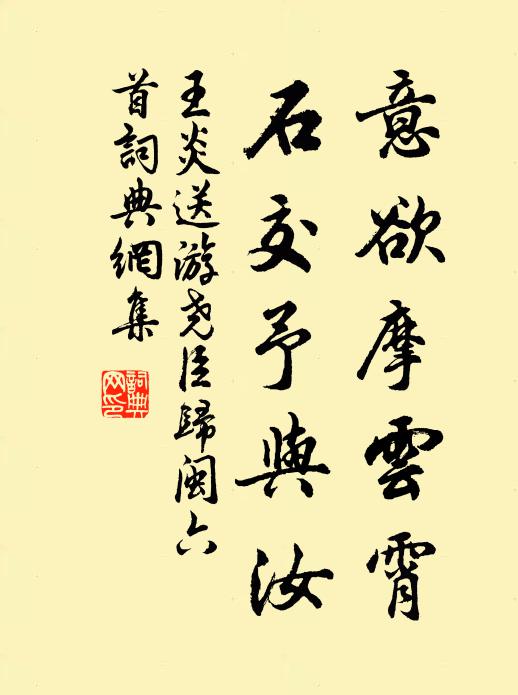 意欲摩雲霄
石交予與汝
王炎送游堯臣歸閩六
首詞典網集
詞典
网印